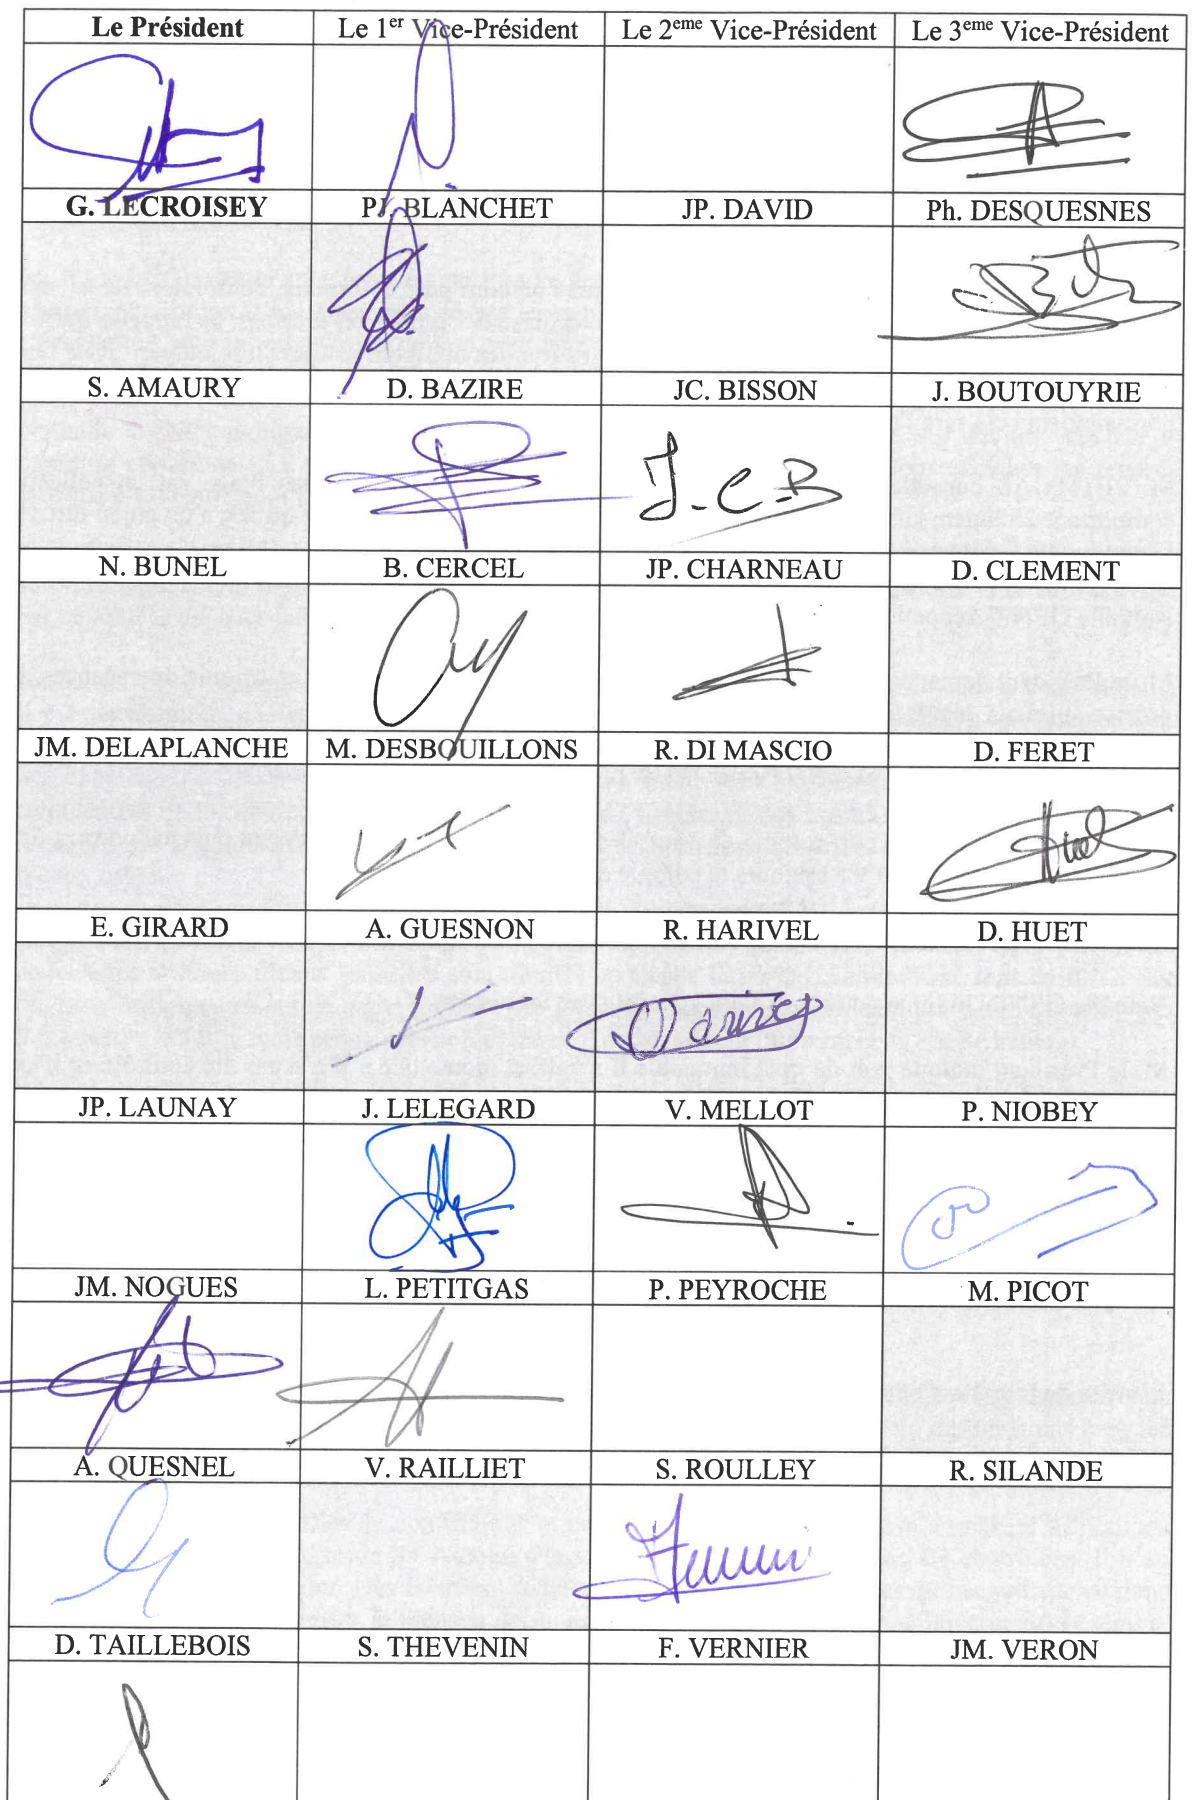 Le Président Le 1er Vice-Président Le 2eme Vice-Président Le 3eme Vice-Président
G. LECROISEY PY. BLANCHET JP. DAVID Ph. DESQUESNES
S. AMAURY D. BAZIRE JC. BISSON J. BOUTOUYRIE
J.C.B
N. BUNEL B. CERCEL JP. CHARNEAU D. CLEMENT
JM. DELAPLANCHE M. DESBOUILLONS R. DI MASCIO D. FERET
Huet
E. GIRARD A. GUESNON R. HARIVEL D. HUET
JP. LAUNAY J. LELEGARD V. MELLOT P. NIOBEY
JM. NOGUES L. PETITGAS P. PEYROCHE M. PICOT
A. QUESNEL V. RAILLIET S. ROULLEY R. SILANDE
D. TAILLEBOIS S. THEVENIN F. VERNIER JM. VERON